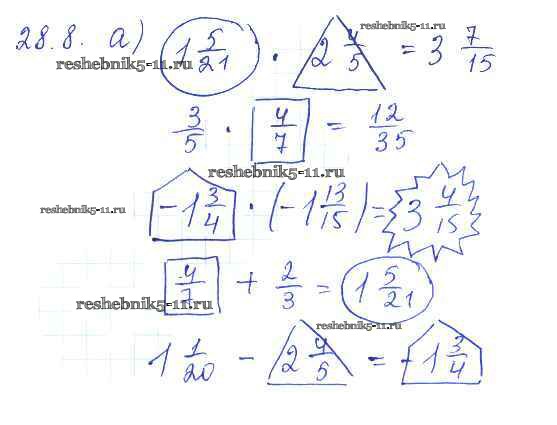 28.8. а) 1 5/21 · 2 4/5 = 3 7/15
reshebnik5-11.ru
reshebnik5-11.ru
3/5 · 4/7 = 12/35
reshebnik5-11.ru
-1 3/4 · (-1 13/15) = 3 4/15
reshebnik5-11.ru
4/7 + 2/3 = 1 5/21
reshebnik5-11.ru
reshebnik5-11.ru
1 1/20 - 2 4/5 = -1 3/4